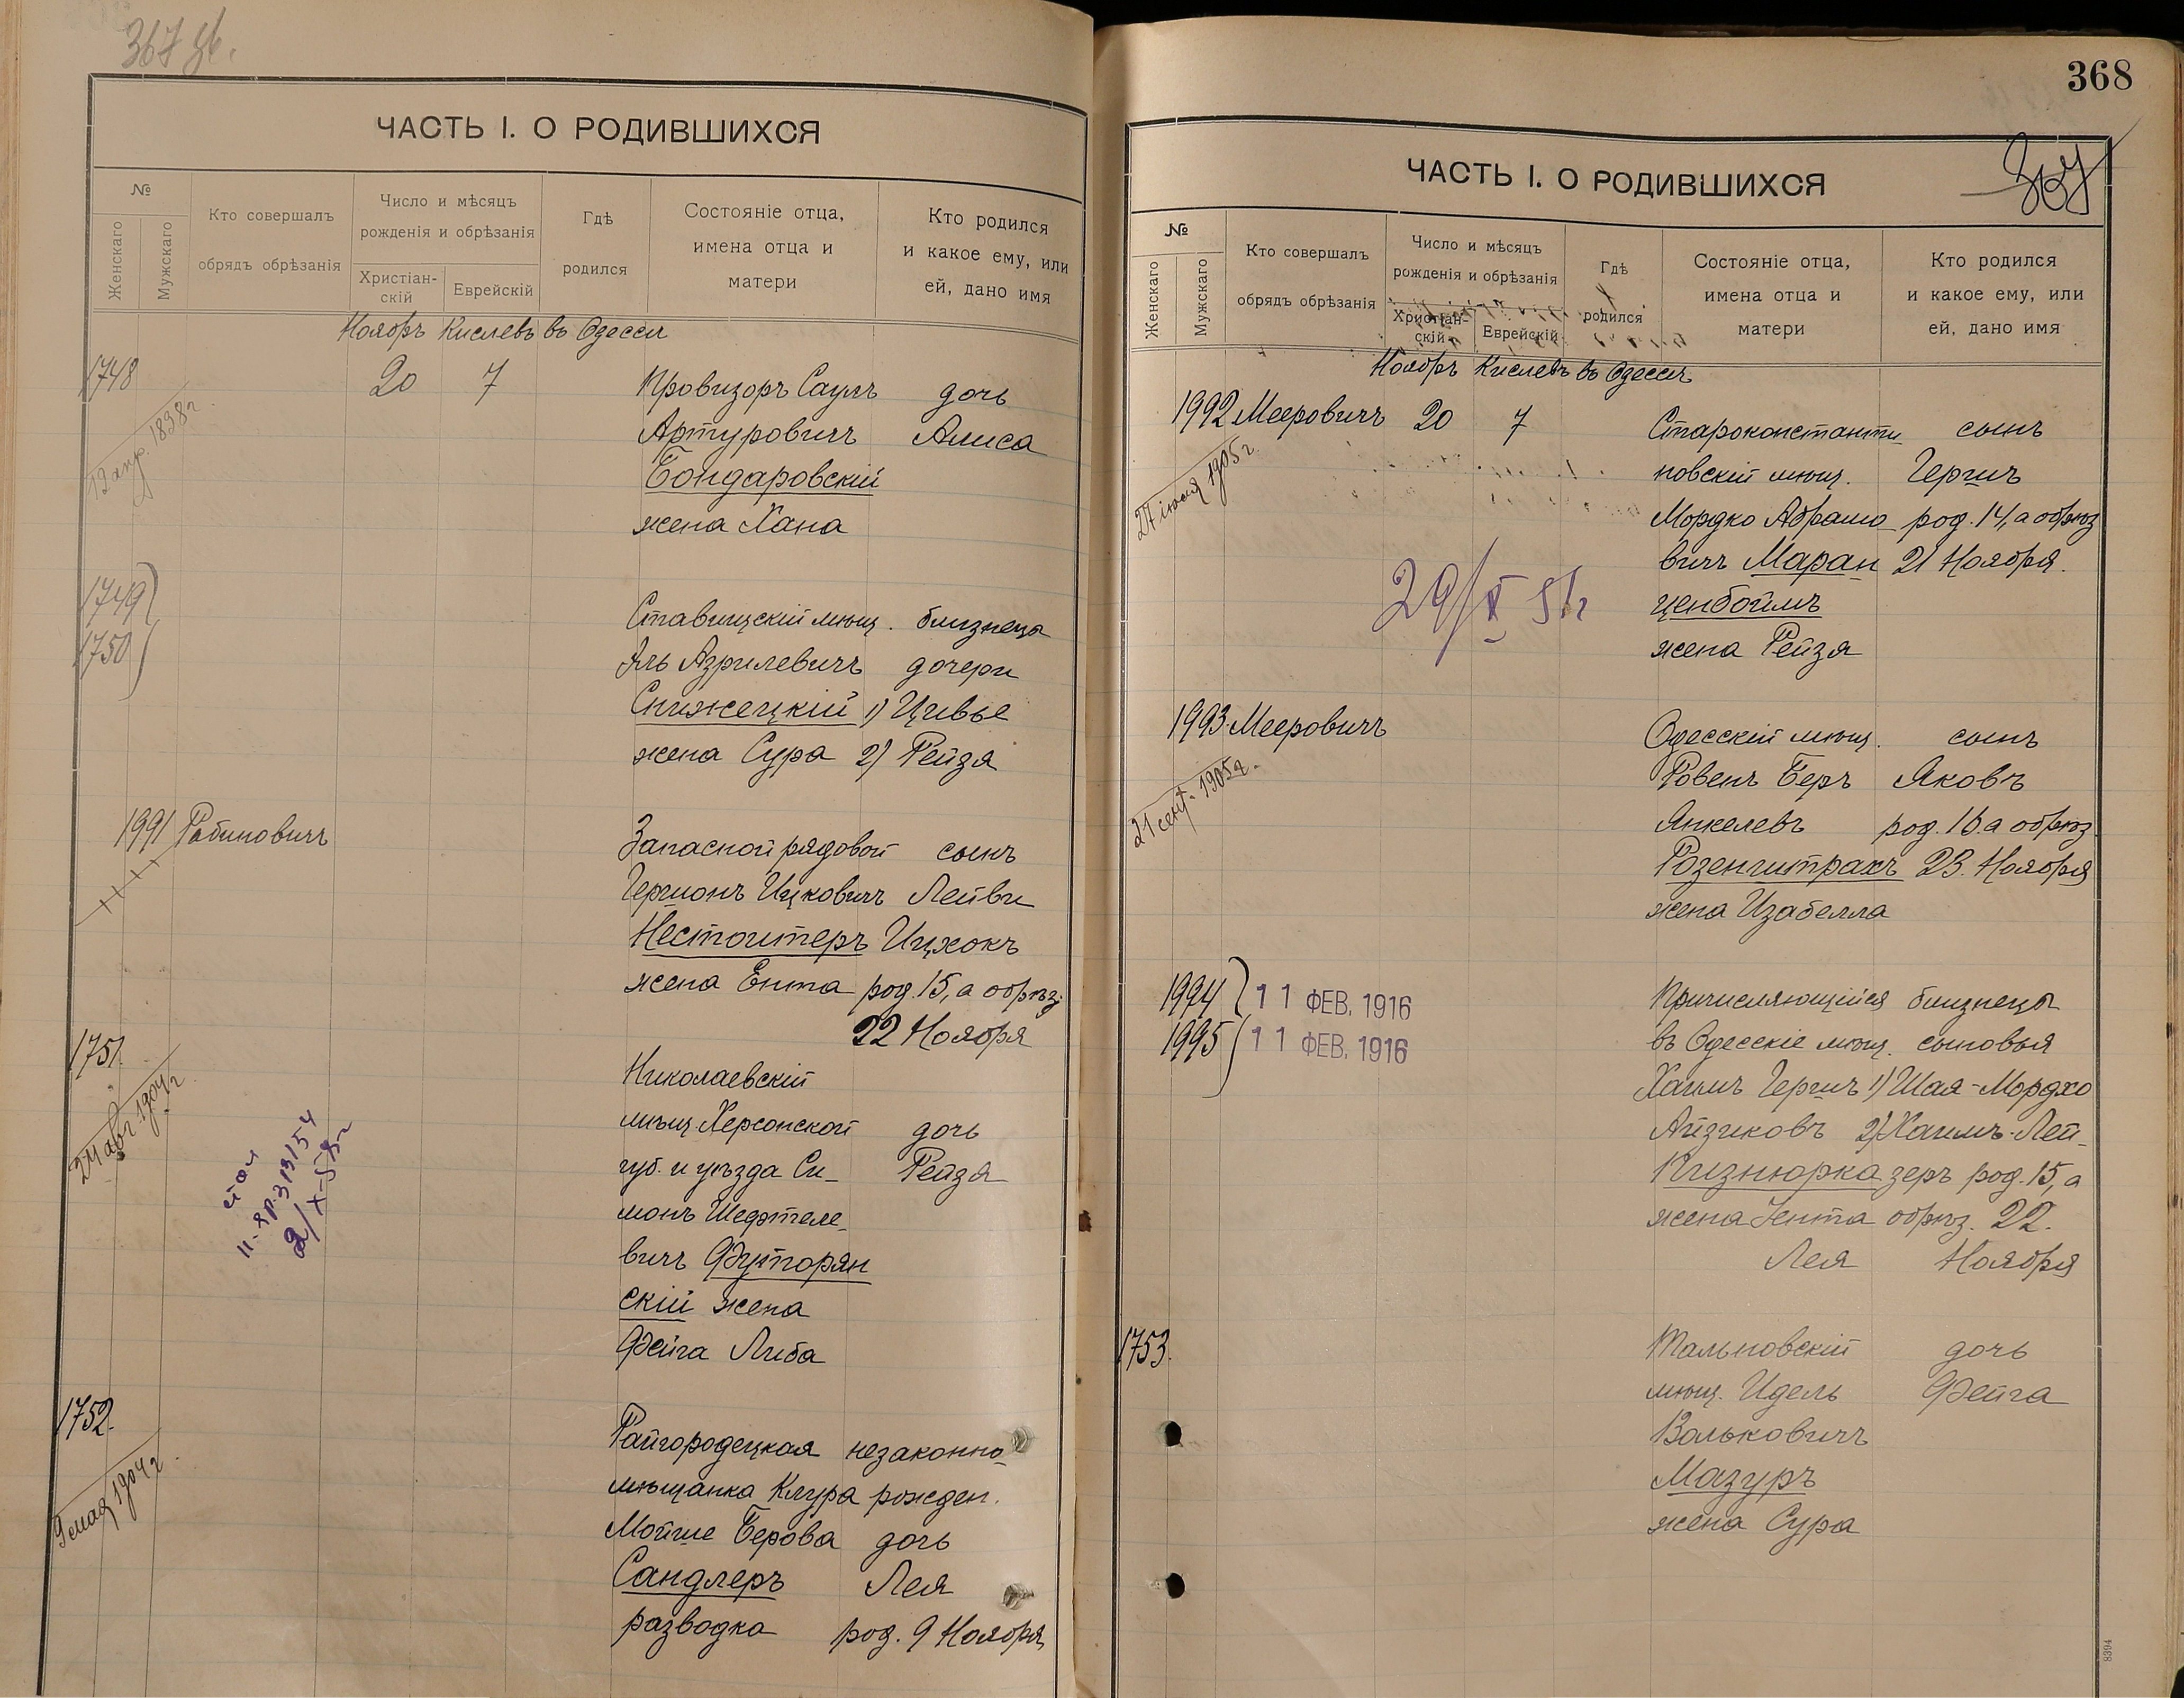 367 об.
ЧАСТЬ I. О РОДИВШИХСЯ
№
Женскаго
Мужскаго
Кто совершалъ
обрядъ обрѣзанія
Число и мѣсяцъ
рожденія и обрѣзанія
Христіан-
скій
Еврейскій
Гдѣ
родился
Состояніе отца,
имена отца и
матери
Кто родился
и какое ему, или
ей, дано имя
Ноябрь Кислевъ въ Одессѣ
1748 20 7 Провизоръ Саулъ дочь
Артуровичъ Алиса
Бондаровскій
жена Хана
1749
1750
Ставищскій мѣщ. близнецы
Эль Азрилевичъ дочери
Снижецкій 1) Цивье
жена Сура 2) Рейзя
1991 Рабиновичъ Запасной рядовой сынъ
Гершонъ Ицковичъ Лейви
Нестоитеръ Ицхокъ
жена Ента род. 15, а обрѣз.
22 Ноября
1751. Николаевскій
24 авг. 1904 г.
мѣщ. Херсонской дочь
губ. и уѣзда Си- Рейзя
монъ Шефтеле-
вичъ Футорян
скій жена
Фейга Либа
1752. Райгородецкая незаконно-
9 мая 1904 г.
мѣщанка Клура рожден.
Мойше Берова дочь
Сандлеръ Лея
разводка род. 9 Ноября
368
ЧАСТЬ I. О РОДИВШИХСЯ
№
Женскаго
Мужскаго
Кто совершалъ
обрядъ обрѣзанія
Число и мѣсяцъ
рожденія и обрѣзанія
Христіан-
скій
Еврейскій
Гдѣ
родился
Состояніе отца,
имена отца и
матери
Кто родился
и какое ему, или
ей, дано имя
Ноябрь Кислевъ въ Одессѣ
1992 Мееровичъ 20 7 Староконстанти сынъ
1905 г.
новскій мѣщ. Гершъ
Мордко Абрамо род. 14, а обрѣз
вичъ Маран 21 Ноября.
ценбоймъ
жена Рейзя
1993. Мееровичъ Одесскій мѣщ. сынъ
21 сент. 1905 г.
Ровенъ Беръ Яковъ
Янкелевъ род. 16. а обрѣз.
Розенштрахъ 23. Ноября
жена Изабелла
1994 11 ФЕВ. 1916 Причисляющійся близнецы
1995 11 ФЕВ. 1916 въ Одесскіе мѣщ. сыновья
Хаимъ Гершъ 1) Шая-Мордхо
Айзиковъ 2) Хаимъ-Лей-
Кизнюрка зеръ род. 15, а
жена Ента обрѣз. 22.
Лея Ноября
1753. Тальновскій дочь
мѣщ. Идель Фейга
Вольковичъ
Мазуръ
жена Сура
8394